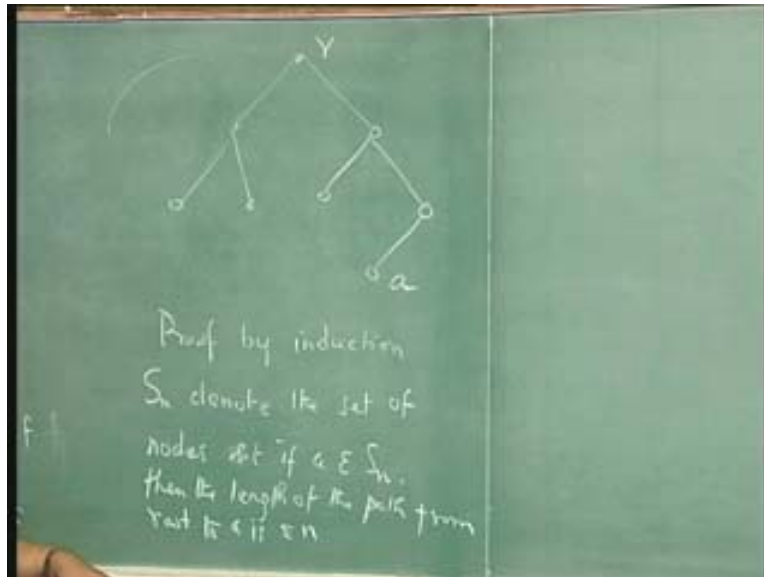 r
a
Proof by induction
Sn denote the set of
nodes st if a ε Sn.
then the length of the path from
root to a is n
f